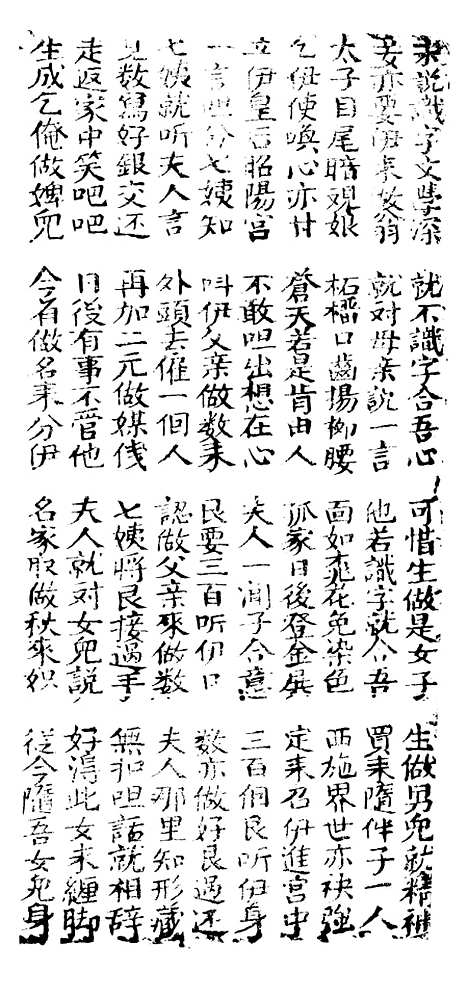 未說識字文學深
就不識字合吾心
可惜生做是女子
生做男兒就精神
妾亦要伊來教
就對母亲說一言
他若識字就合吾
買來隨伴子一人
太子目尾暗覌娘
柘榴口齒揚柳腰
面如桃花免染色
西施界世亦袂強
乞伊使喚心亦甘
蒼天若是肯由人
孤家日後登金殿
定來召伊進宮中
立伊皇后昭陽宮
不敢呾出想在心
夫人一聞子合意
三百個艮听伊身
一言呾分七姨知
叫伊父亲做数來
艮要三百听伊口
数亦做好艮過还
七姨就听夫人言
外頭去催一個人
認做父亲來做数
夫人那里知形藏
見数寫好銀交还
再加二元做媒
七姨將艮接過手
無扣呾話就相辞
走返家中笑吧吧
日後有事不管他
夫人就对女兒説
好淂此女來纏脚
生成乞俺做婢兒
今有做名來分伊
名家取做秋來
從今隨吾女兒身